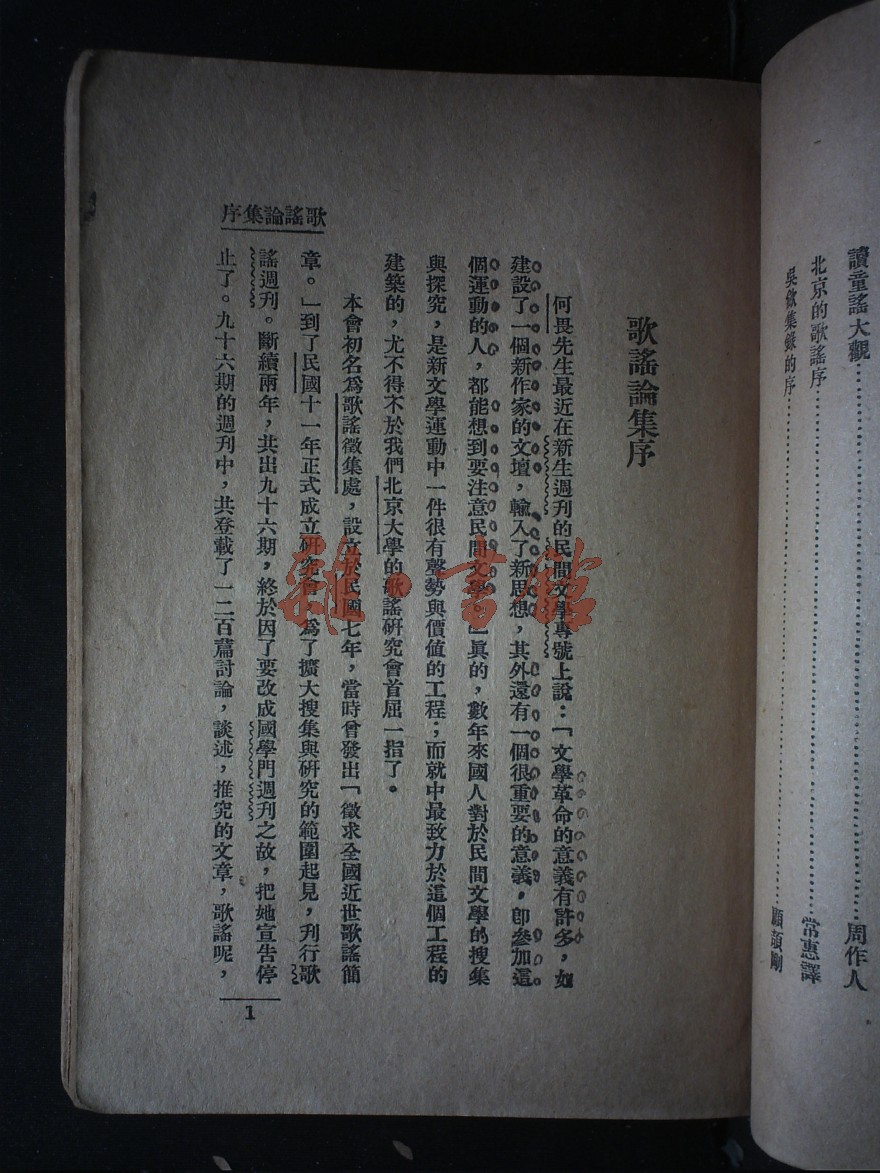 讀童謠大觀……………………周作人
北京的歌謠序……………………常惠譯
吳歈集錄的序……………………顧頡剛
歌謠論集序
歌謠論集序
何畏先生最近在新生週刊的民間文學專號上說:「文學革命的意義有許多,如
建設了一個新作家的文壇,輸入了新思想,其外還有一個很重要的意義,卽參加這
個運動的人,都能想到要注意民間文學。」眞的,數年來國人對於民間文學的搜集
與探究,是新文學運動中一件很有聲勢與價值的工程;而就中最致力於這個工程的
建築的,尤不得不於我們北京大學的歌謠研究會首屈一指了。
本會初名爲歌謠徵集處,設立於民國七年,當時曾發出「徵求全國近世歌謠簡
章。」到了民國十一年正式成立研究會,爲了擴大搜集與研究的範圍起見,刊行歌
謠週刊。斷續兩年,共出九十六期,終於因了要改成國學門週刊之故,把她宣告停
止了。九十六期的週刊中,共登載了一二百篇討論,談述,推究的文章,歌謠呢,
1
雜·書館